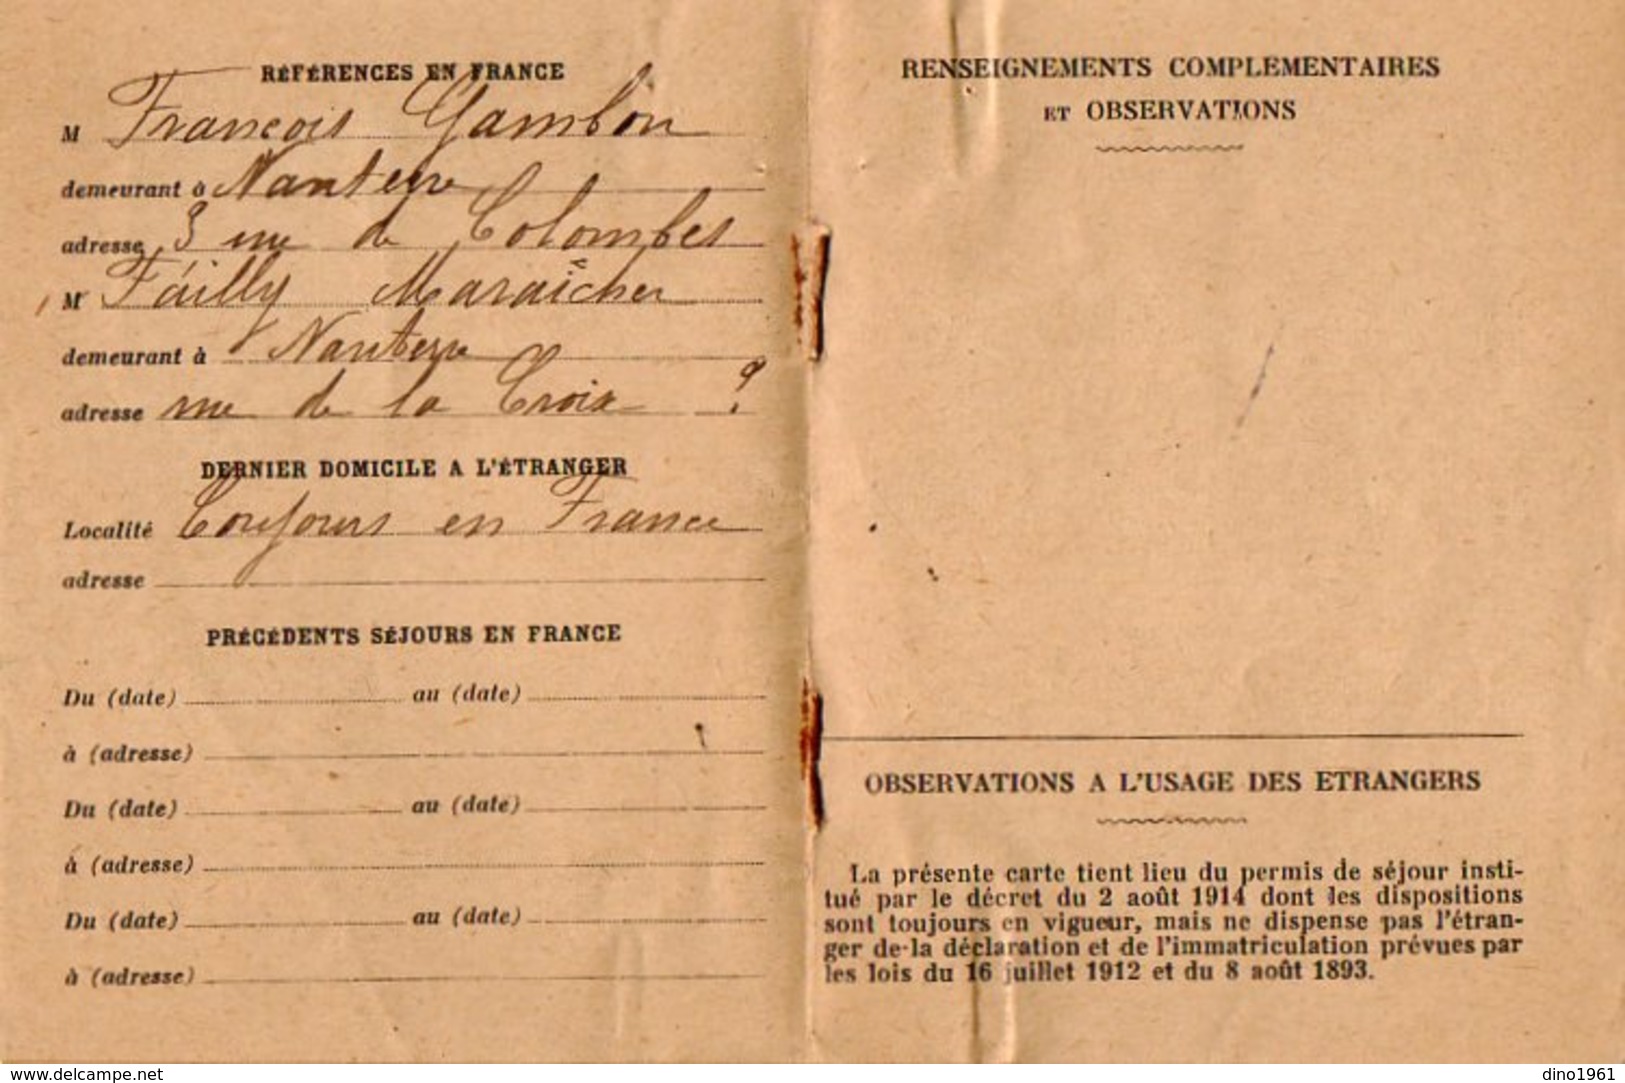 RÉFÉRENCES EN FRANCE
M François Gambon
demeurant à Nanterre
adresse 3 rue de Colombes
M Failly Maraîcher
demeurant à Nanterre
adresse rue de la Croix ?
DERNIER DOMICILE A L'ÉTRANGER
Localité Toujours en France
adresse
PRÉCÉDENTS SÉJOURS EN FRANCE
Du (date) au (date)
à (adresse)
Du (date) au (date)
à (adresse)
Du (date) au (date)
à (adresse)
RENSEIGNEMENTS COMPLEMENTAIRES
ET OBSERVATIONS
OBSERVATIONS A L'USAGE DES ETRANGERS
La présente carte tient lieu du permis de séjour insti-
tué par le décret du 2 août 1914 dont les dispositions
sont toujours en vigueur, mais ne dispense pas l'étran-
ger de la déclaration et de l'immatriculation prévues par
les lois du 16 juillet 1912 et du 8 août 1893.
www.delcampe.net
dino1961